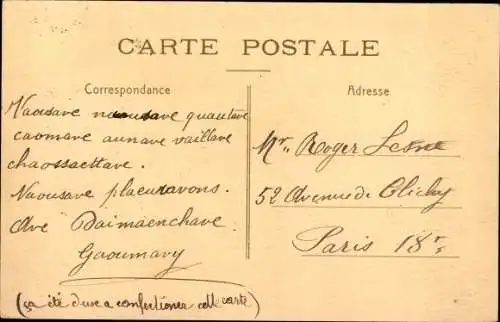 CARTE POSTALE
Correspondance
Adresse
Naousave naousave quantave
caomave aunave vaillave
chaossettave.
Naousave placusavons.
Ave Daimaenchave
Gaoumavy
(ça été dure a confectionner cette carte)
Mr. Roger Lesne
52 Avenue de Clichy
Paris 18e